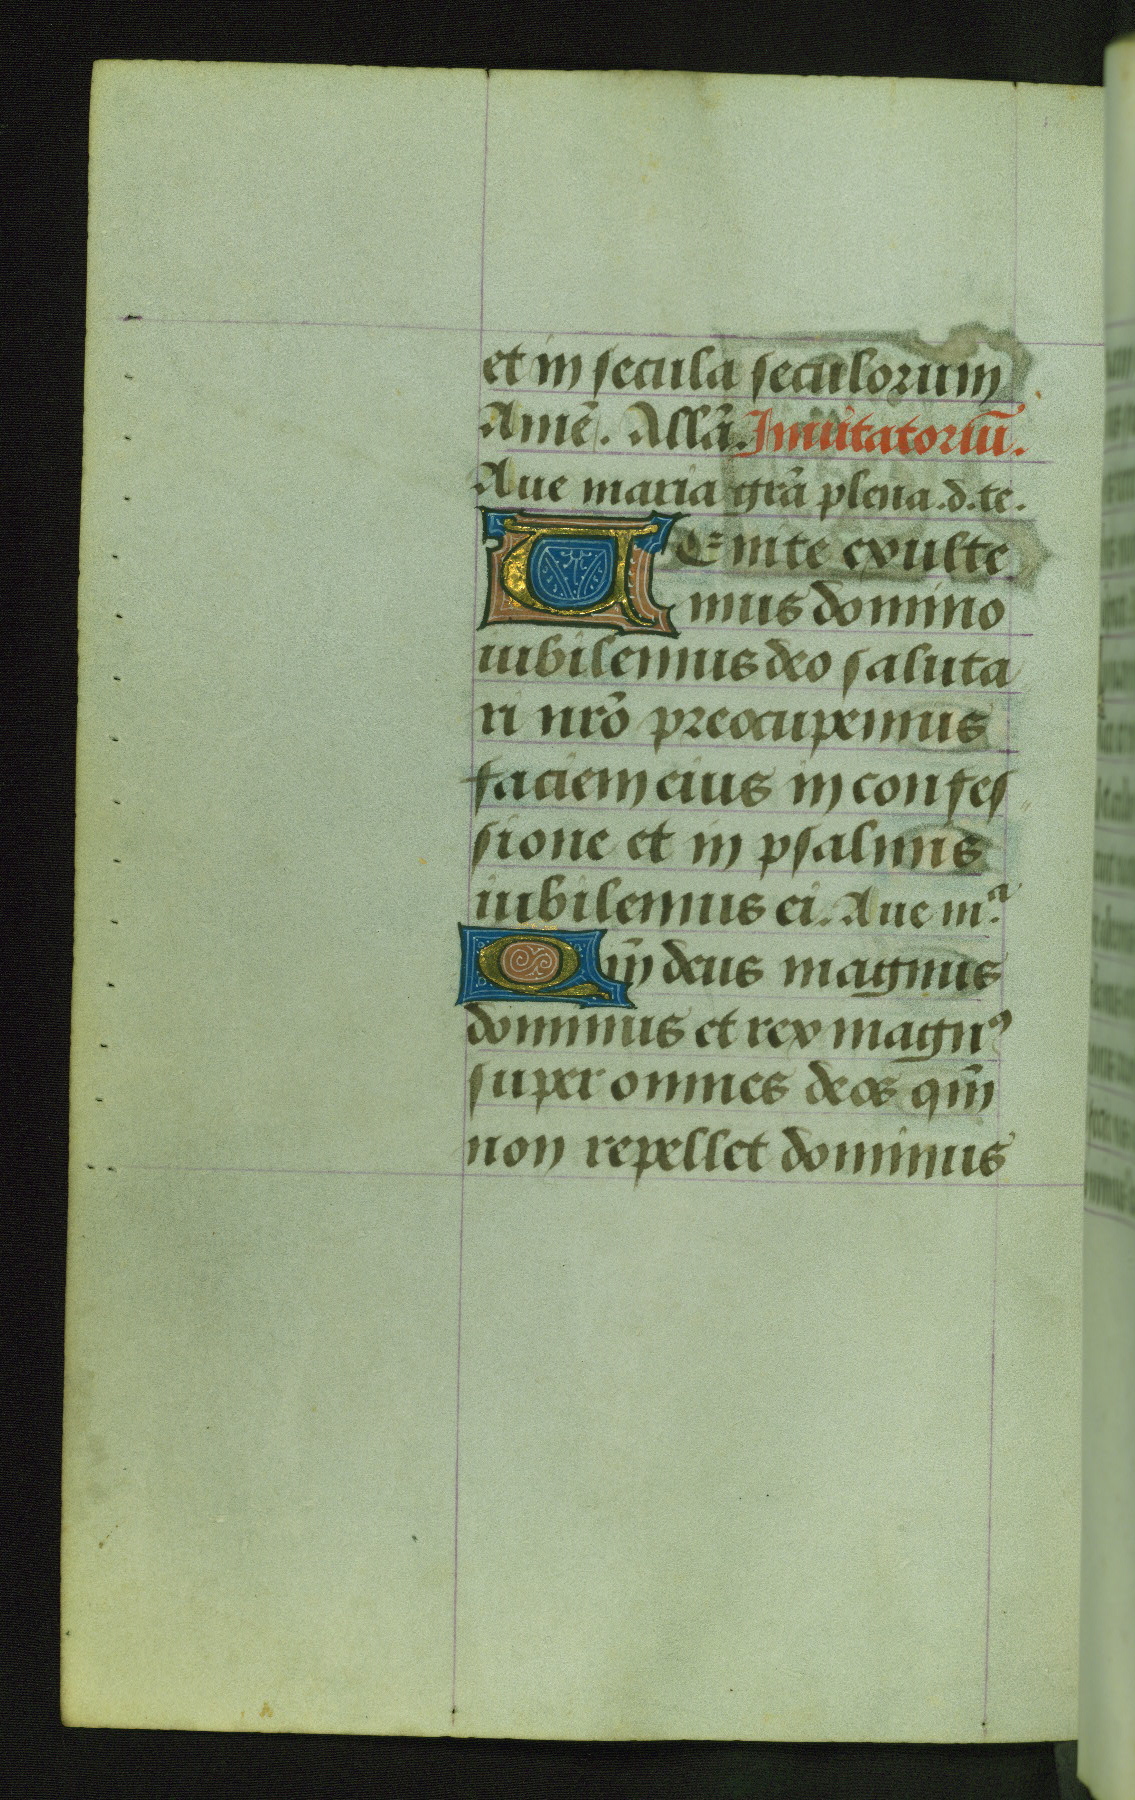 et in secula seculorum
Amē. Allā. Inuitatoriū.
Aue maria grā plena. d. te.
VEnite exulte
mus domino
iubilemus deo saluta
ri nrō preocupemus
faciem eius in confes
sione et in psalmis
iubilemus ei. Aue mª.
Qm̄ deus magnus
dominus et rex magnꝰ
super omnes deos qm̄
non repellet dominus